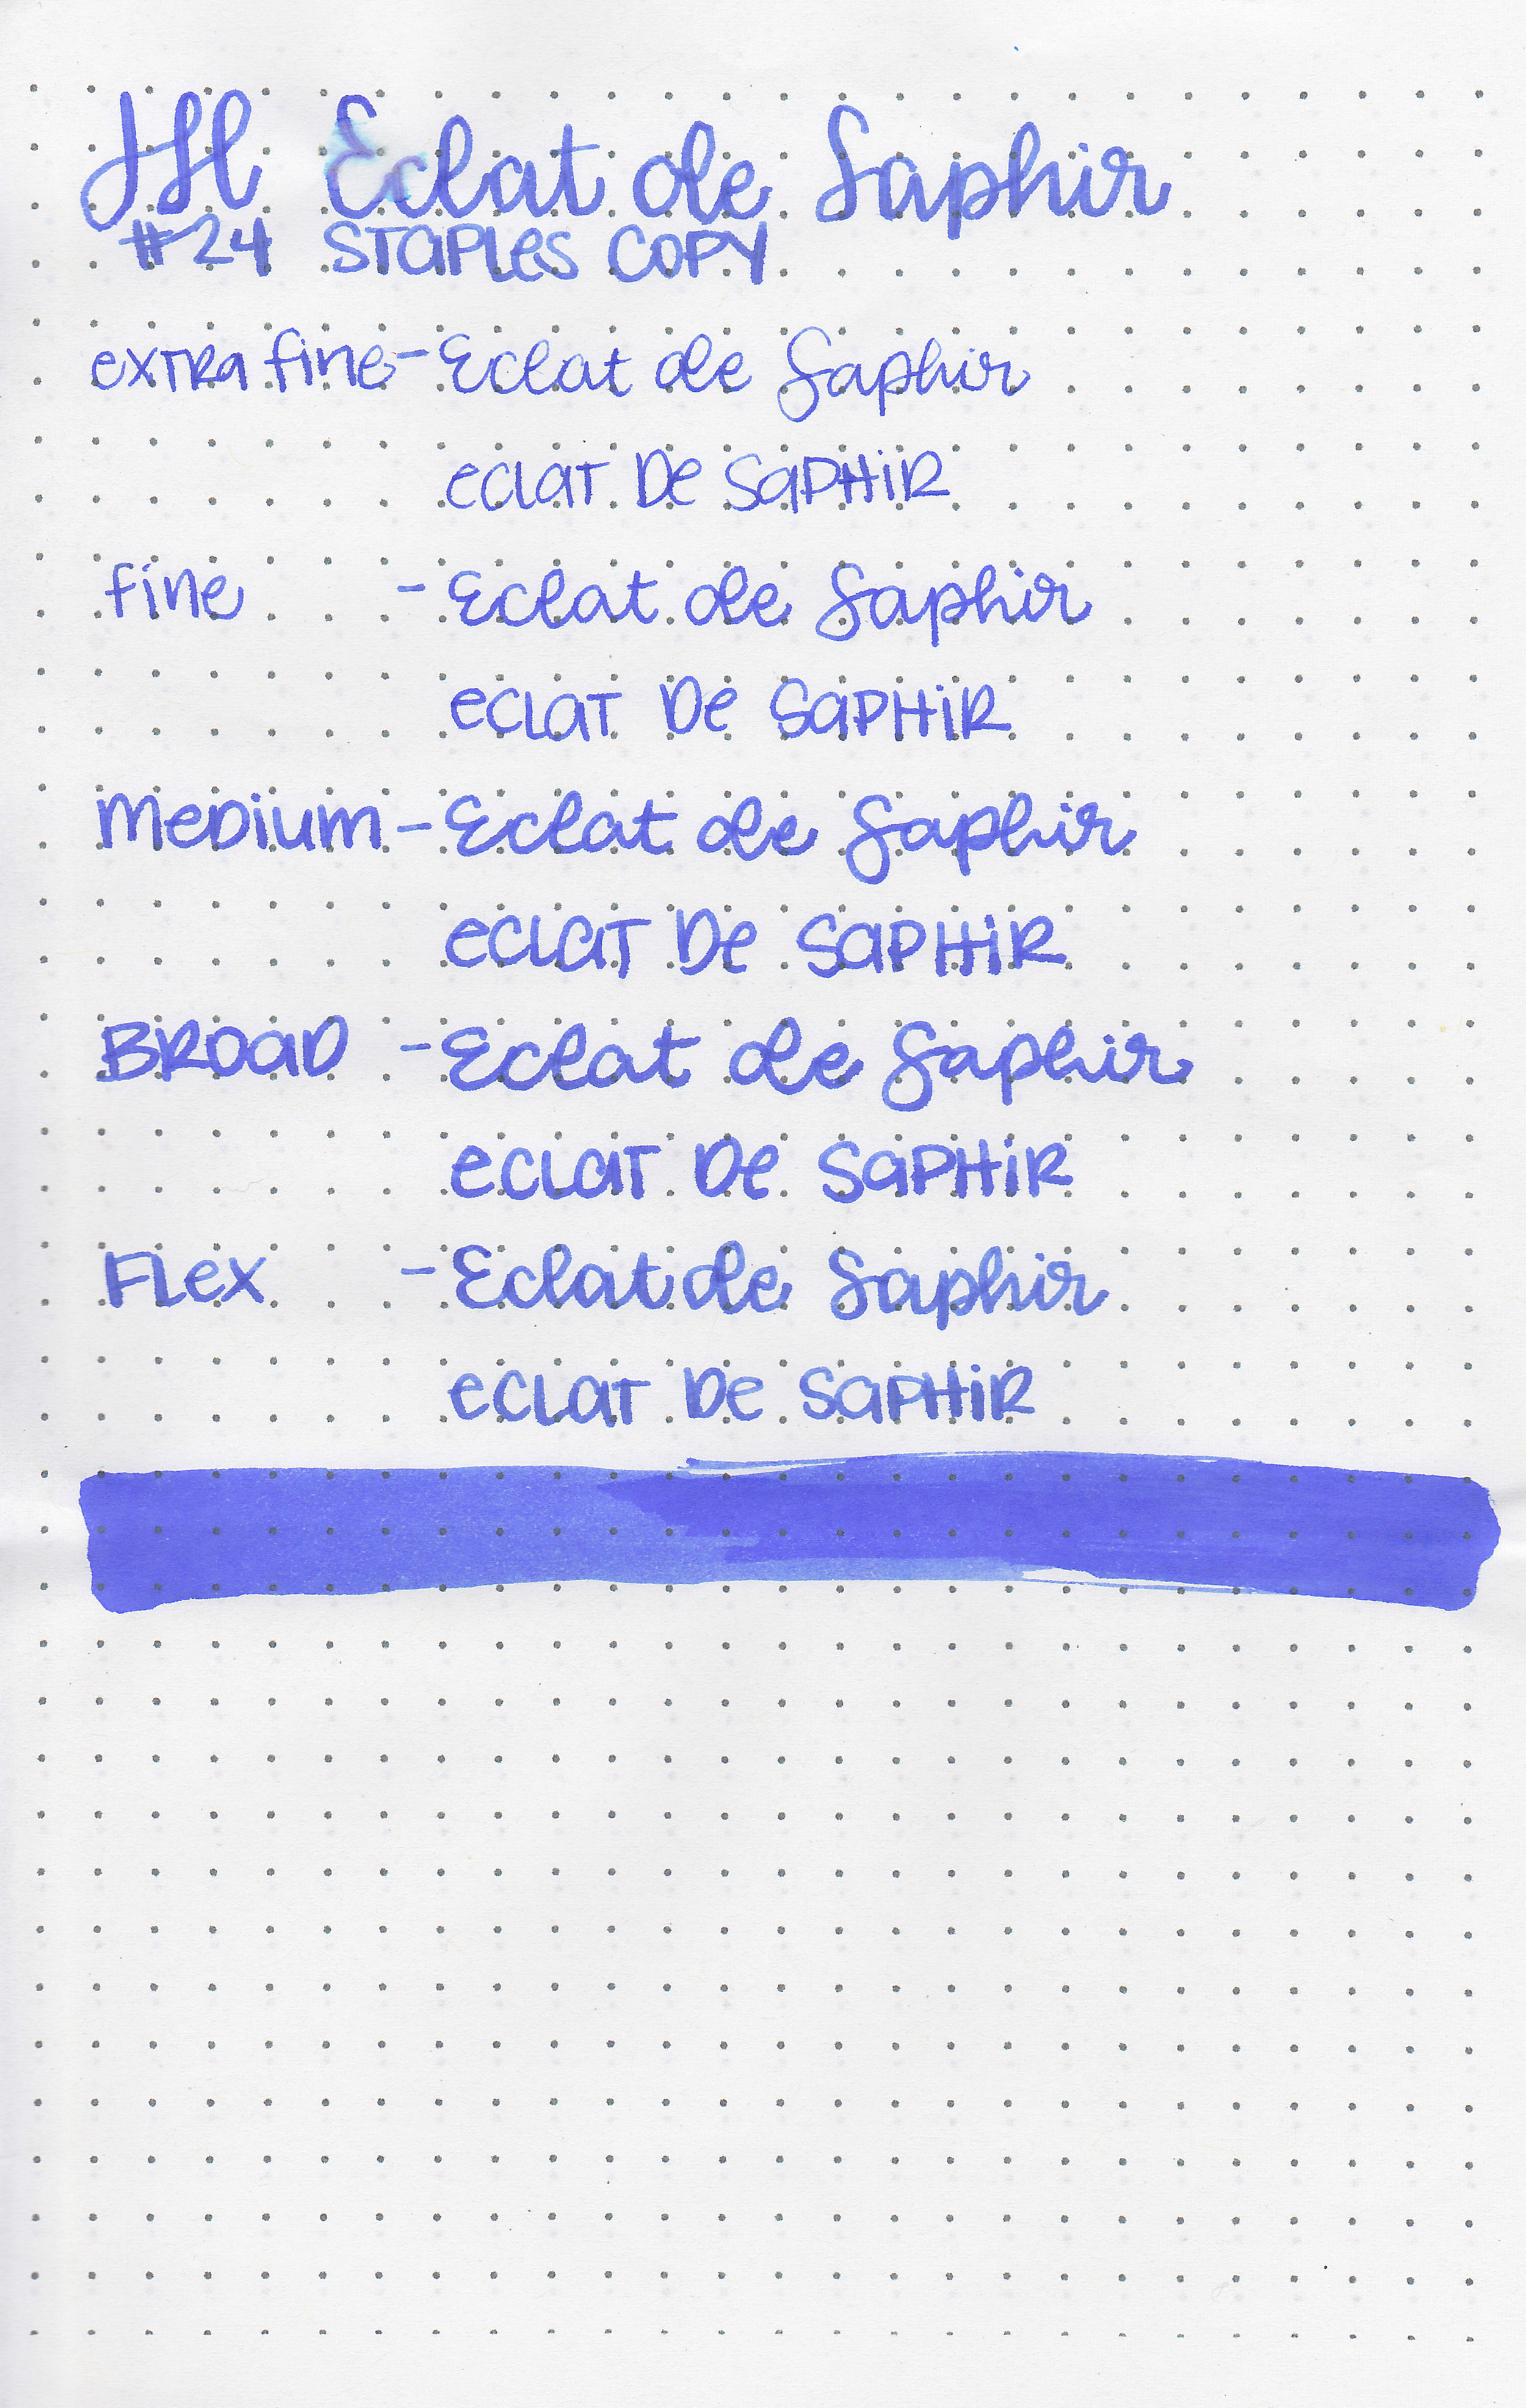 JH Eclat de Saphir
#24 STAPLES COPY
extra fine - Eclat de Saphir
eclat De Saphir
fine - Eclat de Saphir
eclat De Saphir
Medium - Eclat de Saphir
eclat De Saphir
Broad - Eclat de Saphir
eclat De Saphir
Flex - Eclat de Saphir
eclat De Saphir